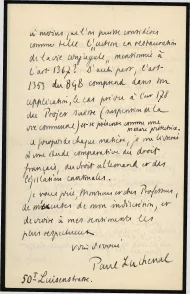 à moins qu'on puisse considérer
comme telle l'"action en restauration
de la vie conjugale" mentionnée à
l'art 1362? D'autre part, l'art.
1353 du BGB comprend dans son
application, le cas prévu à l'art 178
du Projet suisse (suspension de la
vie commune)
mesure protectrice.
à propos de chaque matière, je me livrerai
à une étude comparative du droit
français, du droit allemand et des
législations cantonales.
Je vous prie, Monsieur et cher Professeur,
de m'excuser de mon indiscrétion, et
de croire à mes sentiments les
plus respectueux
Votre dévoué
Paul Lachenal
50 I Luisenstrasse.